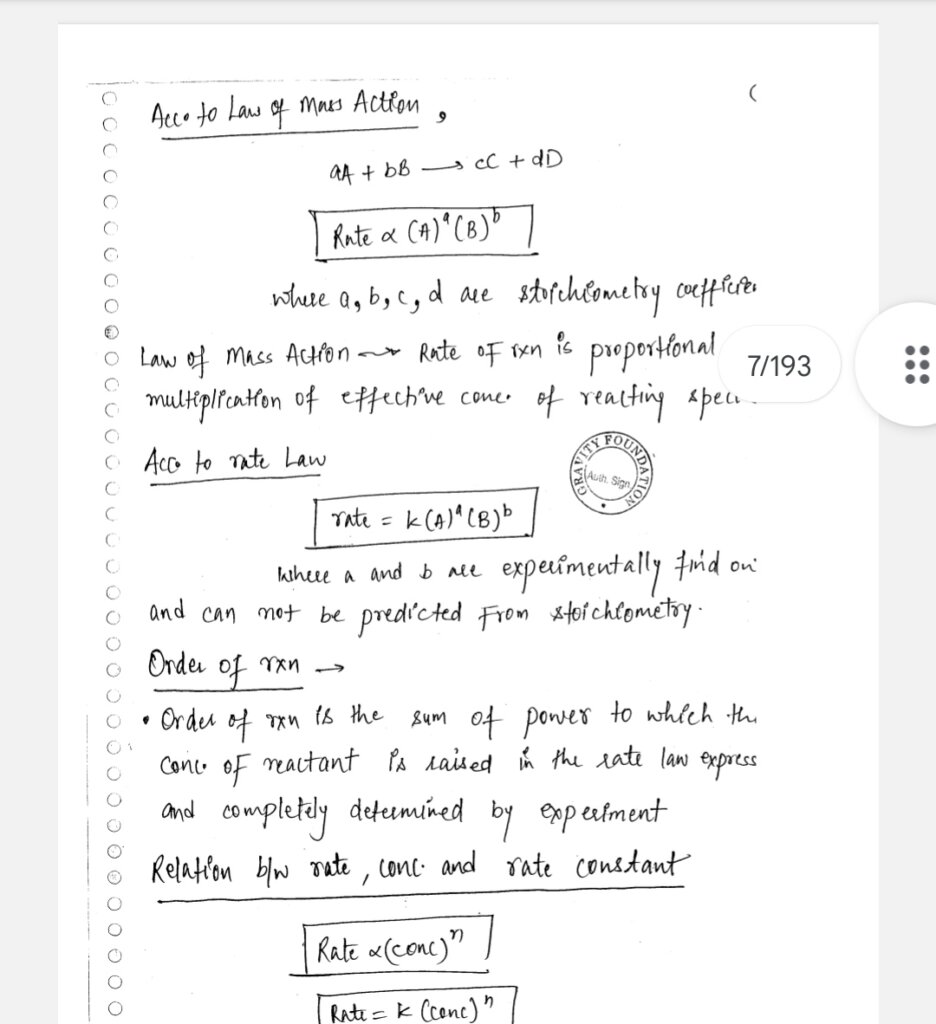 Acco to Law of Mass Action,
aA + bB → cC + dD
Rate ∝ (A)ᵃ (B)ᵇ
where a, b, c, d are stoichiometry
Law of Mass Action → Rate of rxn is proportional
7/193
multiplication of effective conc. of reacting
Acco to rate Law
GRAVITY FOUNDATION
Auth. Sign.
rate = k(A)ᵃ (B)ᵇ
where a and b are experimentally find
and can not be predicted From stoichiometry.
Order of rxn →
• Order of rxn is the sum of power to which
conc. of reactant is raised in the rate law express
and completely determined by experiment
Relation b/w rate, conc. and rate constant
Rate ∝ (conc)ⁿ
Rate = k (conc)ⁿ